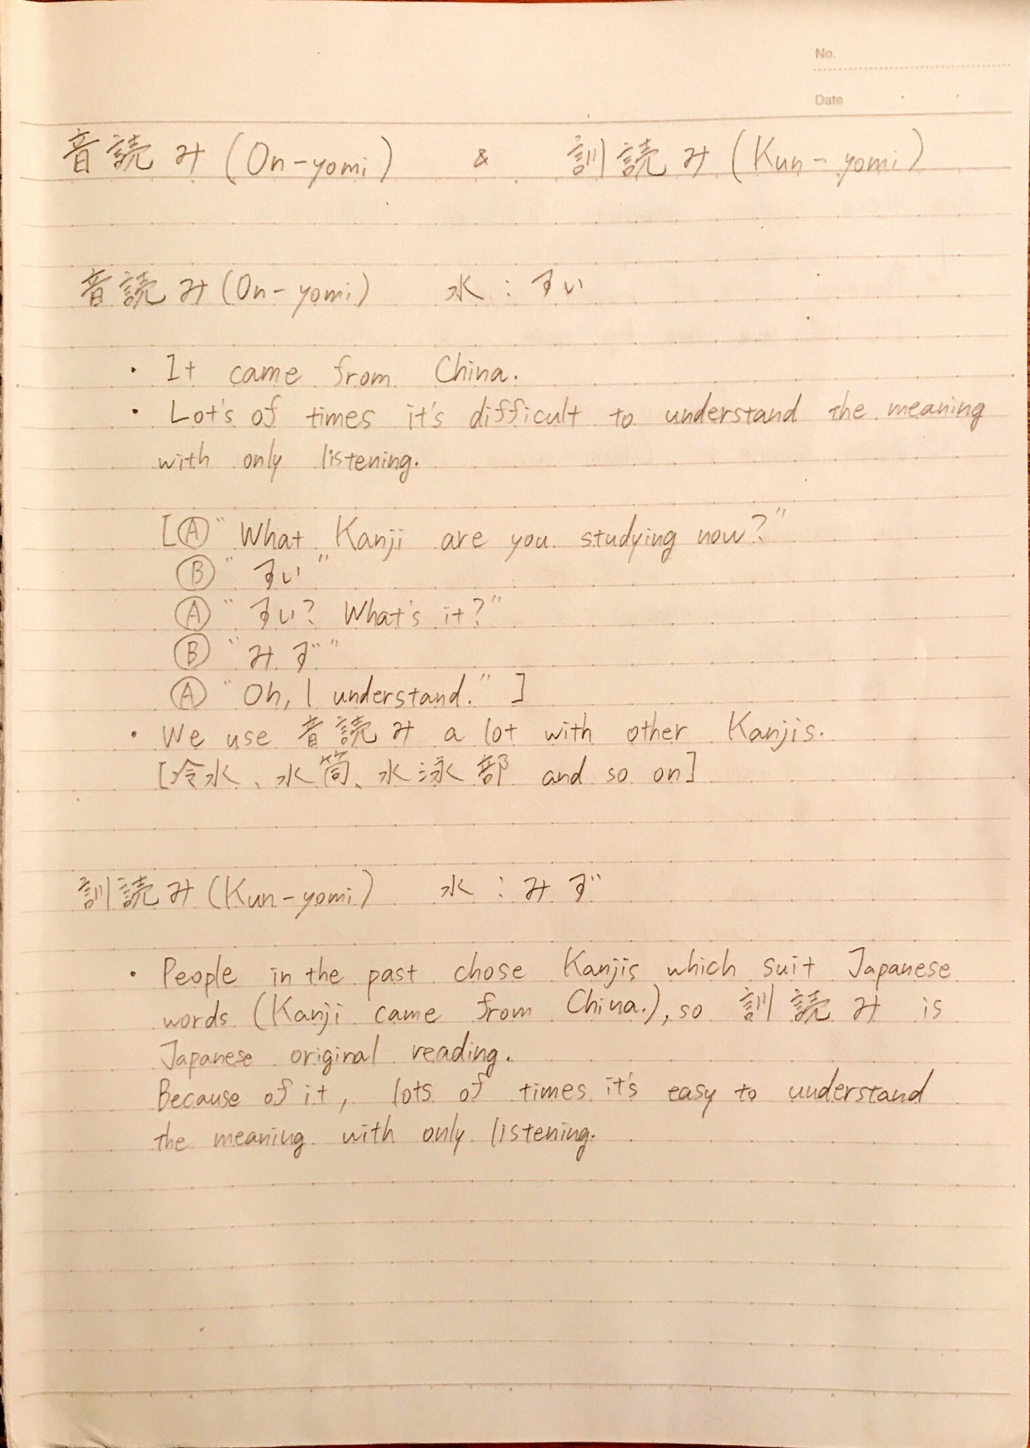 No.
Date
音読み(On-yomi) & 訓読み(Kun-yomi)
音読み(On-yomi) 水:すい
・It came from China.
・Lot's of times it's difficult to understand the meaning
with only listening.
[Ⓐ "What Kanji are you studying now?"
Ⓑ "すい"
Ⓐ "すい? What's it?"
Ⓑ "みず"
Ⓐ "Oh, I understand." ]
・We use 音読み a lot with other Kanjis.
[冷水、水筒、水泳部 and so on]
訓読み(Kun-yomi) 水:みず
・People in the past chose Kanjis which suit Japanese
words (Kanji came from China.), so 訓読み is
Japanese original reading.
Because of it, lots of times it's easy to understand
the meaning with only listening.